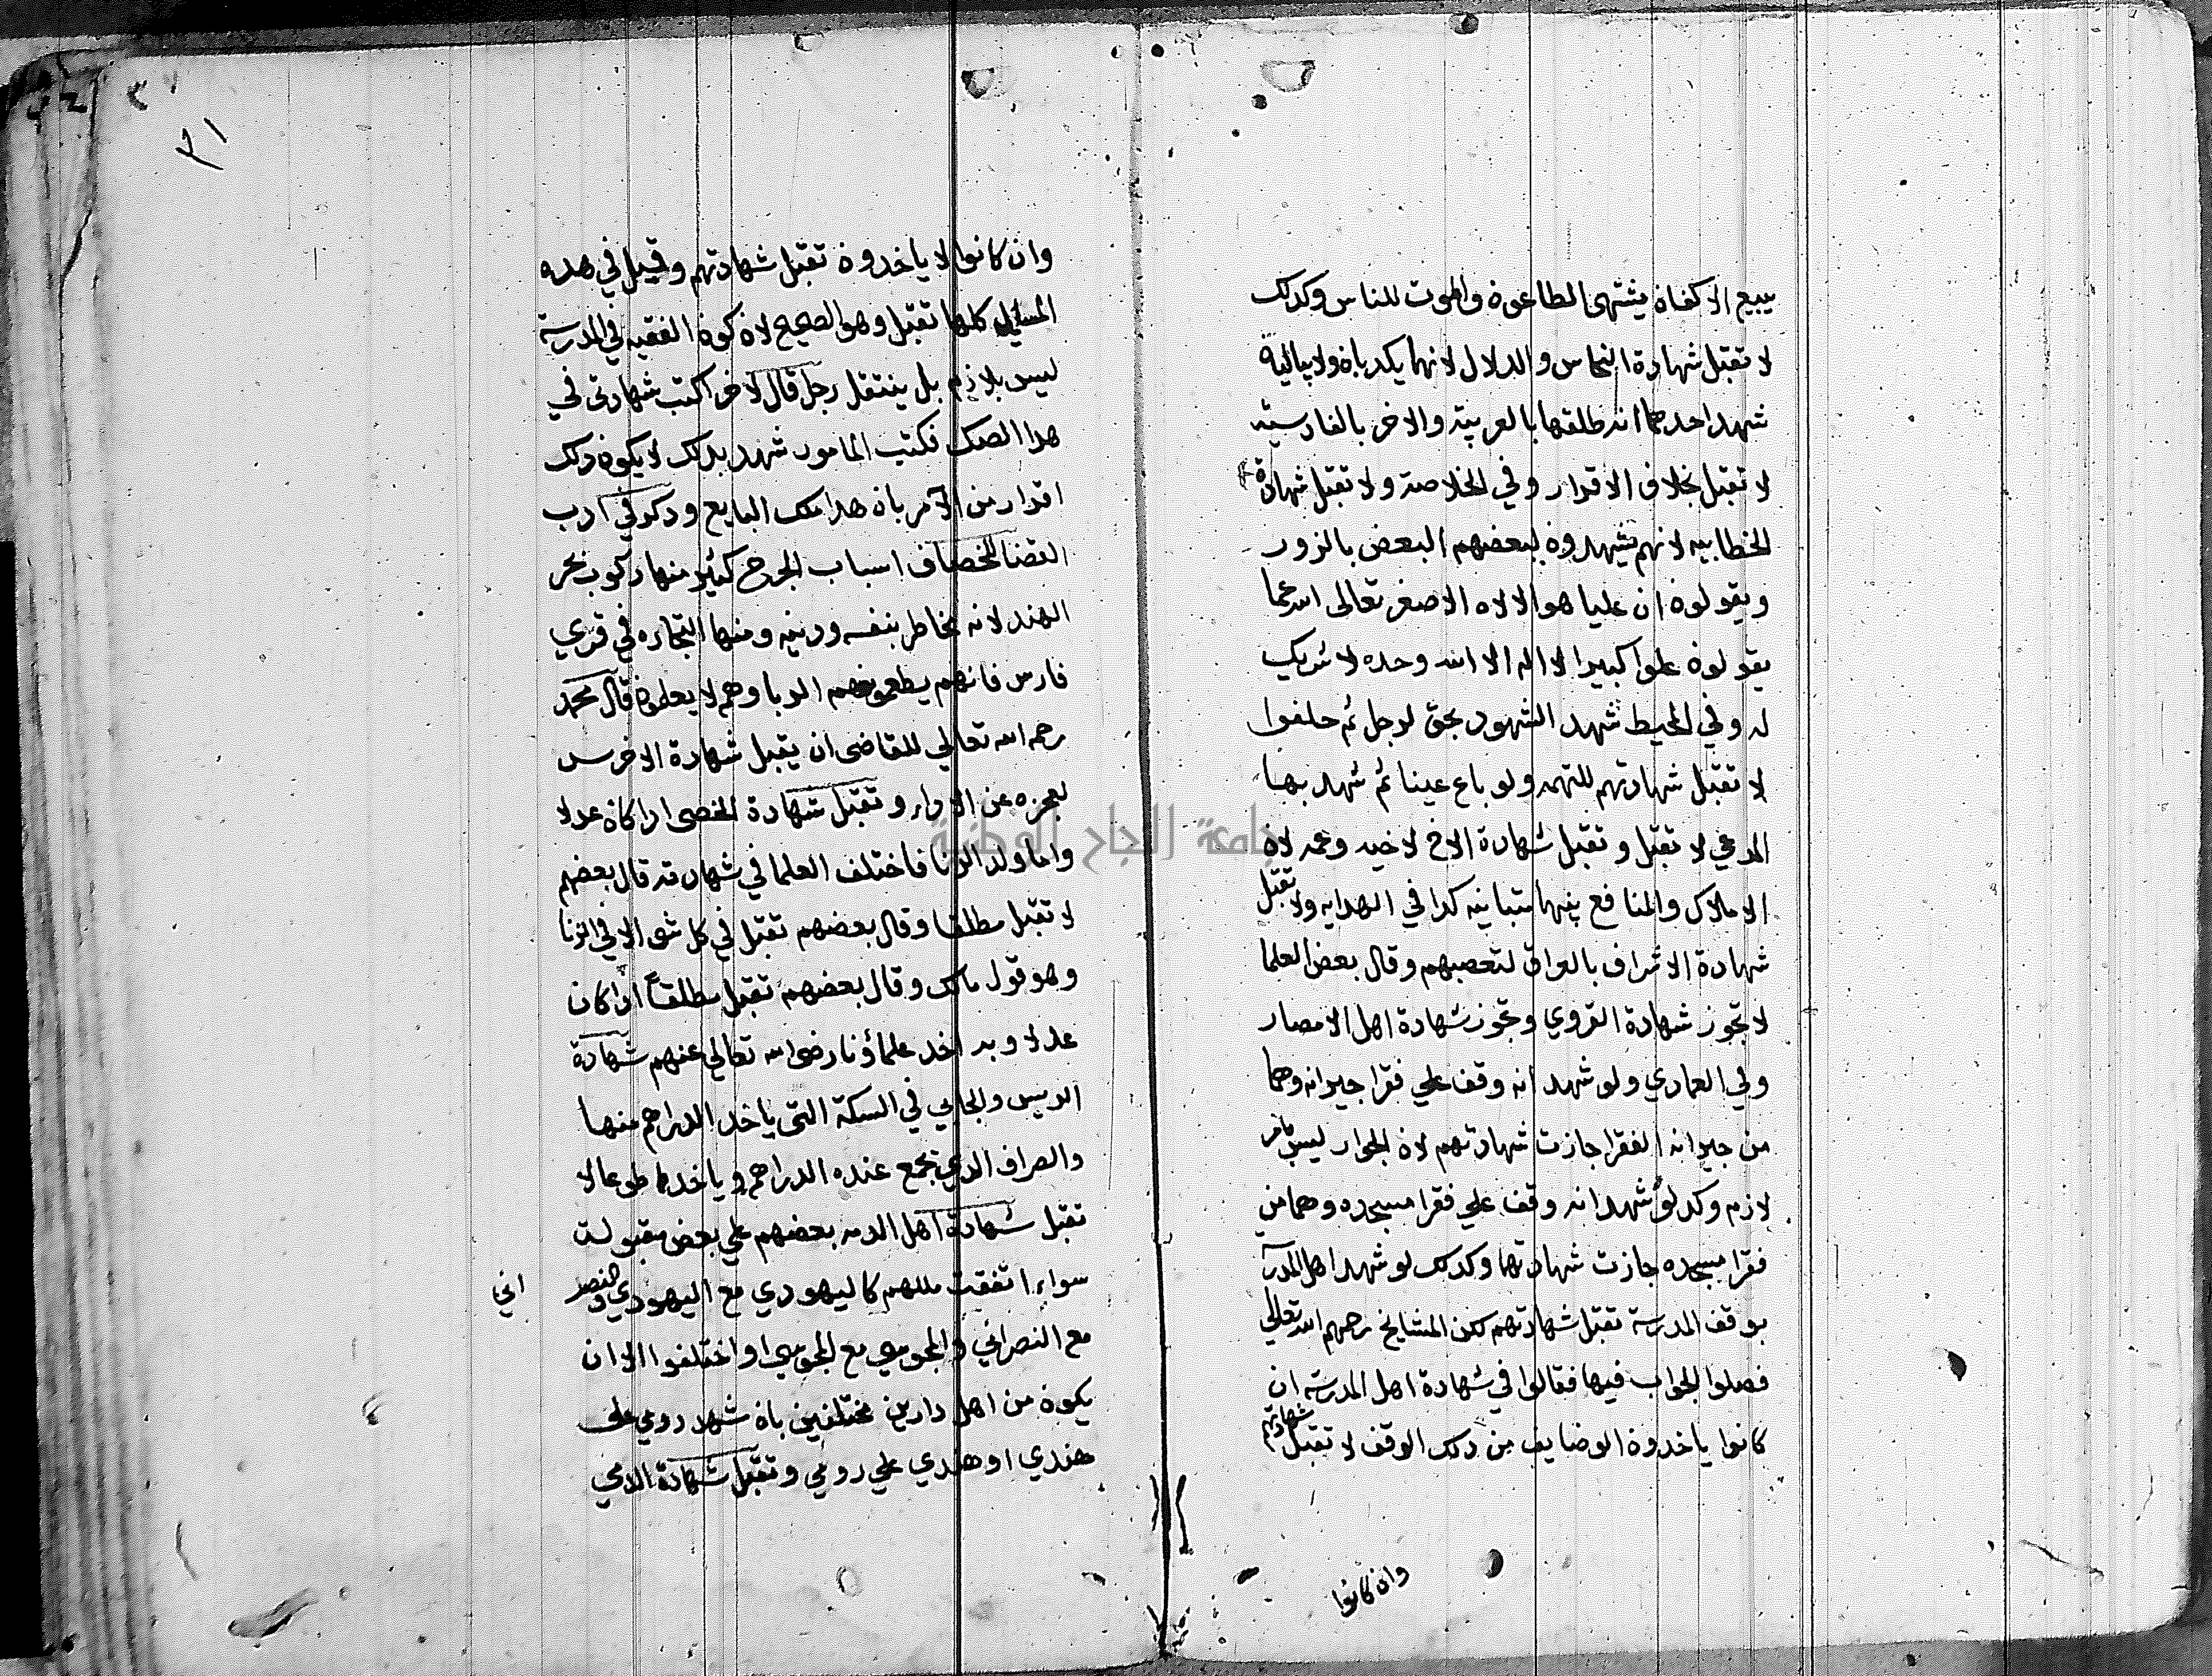 يبيع الاكفان يشتهى الطاعون والموت للناس وكدلك
لا تقبل شهادة النخاس والدلال لانهما يكدبان ولا يباليان
شهد احدهما انه طلقها بالعربية والاخر بالفارسية
لا تقبل بخلاف الاقرار وفي الخلاصة ولا تقبل شهادة
الخطابيه لانهم يشهدون لبعضهم البعض بالزور
ويقولون ان عليا هو الالاه الاصغر تعالى الله عما
يقولون علوا كبيرا لا اله الا الله وحده لا شريك
له وفي المحيط شهد الشهود بحق لرجل ثم حلفوا
لا تقبل شهادتهم للتهمه ولو باع عينا ثم شهد بها
المدعي لا تقبل وتقبل شهادة الاخ لاخيه وعمه لان
الاملاك والمنافع بينهما متباينه كدا في الهدايه ولا تقبل
شهادة الاشراف بالعراق لتعصبهم وقال بعض العلما
لا تجوز شهادة القروي وتجوز شهادة اهل الامصار
وفي العمادي ولو شهد انه وقف علي فقرا جيرانه وهما
من جيرانه الفقرا جازت شهادتهم لان الجوار ليس بامر
لازم وكدا لو شهدا انه وقف علي فقرا مسجده وهما من
فقرا مسجده جازت شهادتهما وكدلك لو شهد اهل المدرسة
بوقف المدرسة تقبل شهادتهم لكن المشايخ رحمهم الله تعالي
فصلوا الجواب فيها فقالوا في شهادة اهل المدرسه ان
كانوا ياخدون الوضايف من دلك الوقف لا تقبل شهادتهم
وان كانوا
٢١
وان كانوا لا ياخدون تقبل شهادتهم وقيل في هده
المسايل كلها تقبل وهو الصحيح لان كون الفقيه في المدرسة
ليس بلازم بل ينتقل رجل قال لاخر اكتب شهادتي في
هدا الصك فكتب المامور شهد بدلك لا يكون دلك
اقرار من الآمر بان هدا ملك البايع ودكر في ادب
القضا للخصاف اسباب الجرح كثير منها ركوب بحر
الهند لانه مخاطر بنفسه ودينه ومنها التجاره في قري
فارس فانهم يطعمونهم الربا وهم لا يعلمون قال محمد
رحمه الله تعالي للقاضى ان يقبل شهادة الاخرس
لعجزه عن الاداء وتقبل شهادة الخصى ادا كان عدلا
واما ولد الزنا فاختلف العلما في شهادته قال بعضهم
لا تقبل مطلقا وقال بعضهم تقبل في كل شى الا في الزنا
وهو قول مالك وقال بعضهم تقبل مطلقاً ادا كان
عدلا وبه اخد علماؤنا رضى الله تعالي عنهم شهادة
الريس والجابي في السكة التى ياخد الدراهم منها
والصراف الدي تجمع عنده الدراهم وياخدها طوعا لا
تقبل شهادة اهل الدمه بعضهم علي بعض مقبولة
سواء اتفقت مللهم كاليهودي مع اليهودي والنصر اني
مع النصراني والمجوسي مع المجوسي او اختلفوا الا ان
يكون من اهل دارين مختلفين بان شهد رومي على
هندي او هندي علي رومي وتقبل شهادة الدمي
جامعة النجاح الوطنية